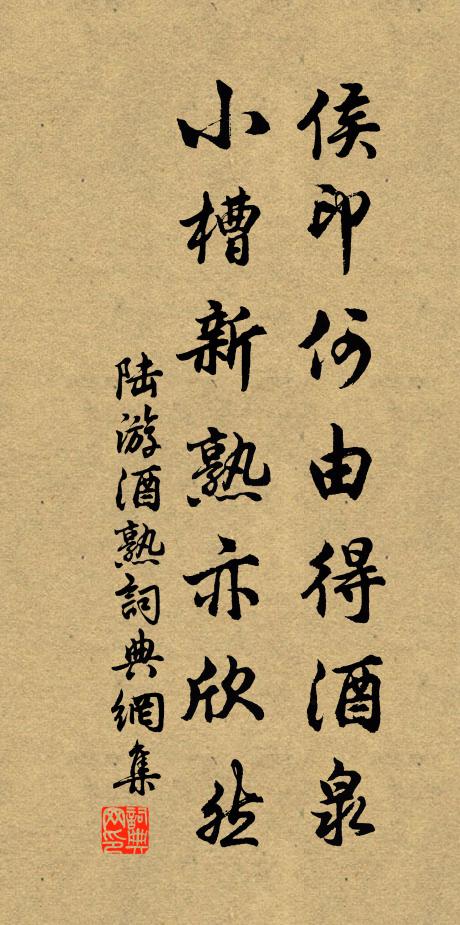 侯印何由得酒泉
小槽新熟亦欣然
陆游酒熟詞典網集
詞典網印